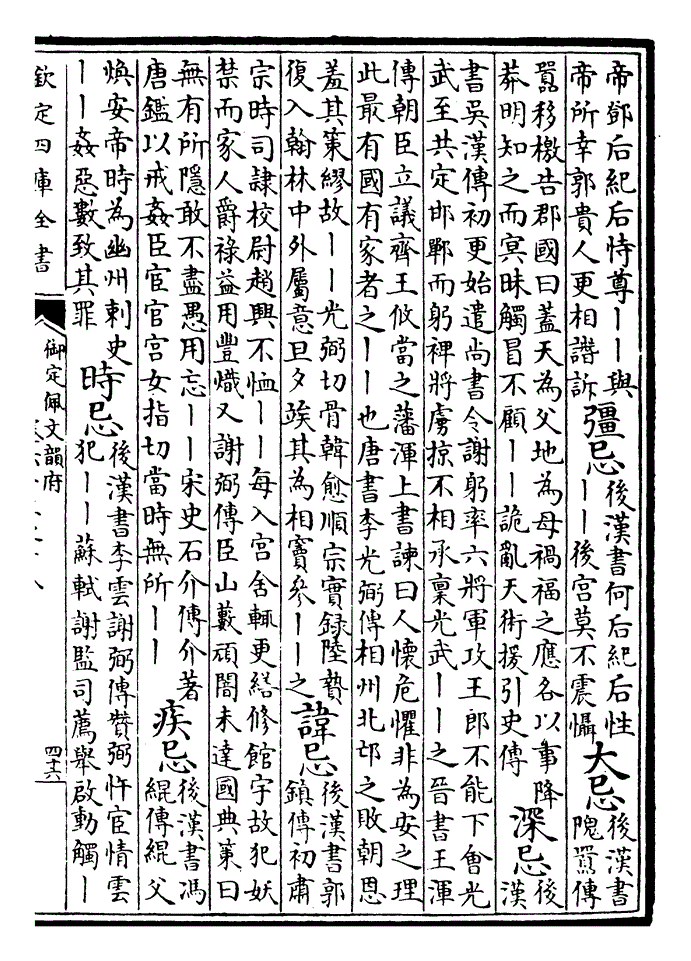 帝鄧后紀后恃尊丨丨與
帝所幸郭貴人更相譖訴
彊忌
後漢書何后紀后性
丨丨後宫莫不震懾
大忌
後漢書
隗嚻傳
嚻移檄告郡國曰蓋天為父地為母禍福之應各以事降
莽明知之而冥昧觸冒不顧丨丨詭亂天術援引史傳
深忌
後
漢
書吳漢傳初更始遣尚書令謝躬率六將軍攻王郎不能下會光
武至共定邯鄲而躬裨將虜掠不相承稟光武丨丨之晉書王渾
傳朝臣立議齊王攸當之藩渾上書諫曰人懷危懼非為安之理
此最有國有家者之丨丨也唐書李光弼傳相州北邙之敗朝恩
羞其策繆故丨丨光弼切骨韓愈順宗實録陸贄
復入翰林中外屬意旦夕竢其為相竇參丨丨之
諱忌
後漢書郭
鎮傳初肅
宗時司隷校尉趙興不恤丨丨每入官舍輙更繕修館宇故犯妖
禁而家人爵祿益用豐熾又謝弼傳臣山藪頑闇未達國典策曰
無有所隱敢不盡愚用忘丨丨宋史石介傳介著
唐鑑以戒姦臣宦官宫女指切當時無所丨丨
疾忌
後漢書馮
緄傳緄父
煥安帝時為幽州刺史
丨丨姦惡數致其罪
時忌
後漢書李雲謝弼傳贊弼忤宦情雲
犯丨丨蘇軾謝監司薦舉啟動觸丨
欽定四庫全書
御定佩文韻府
四十六